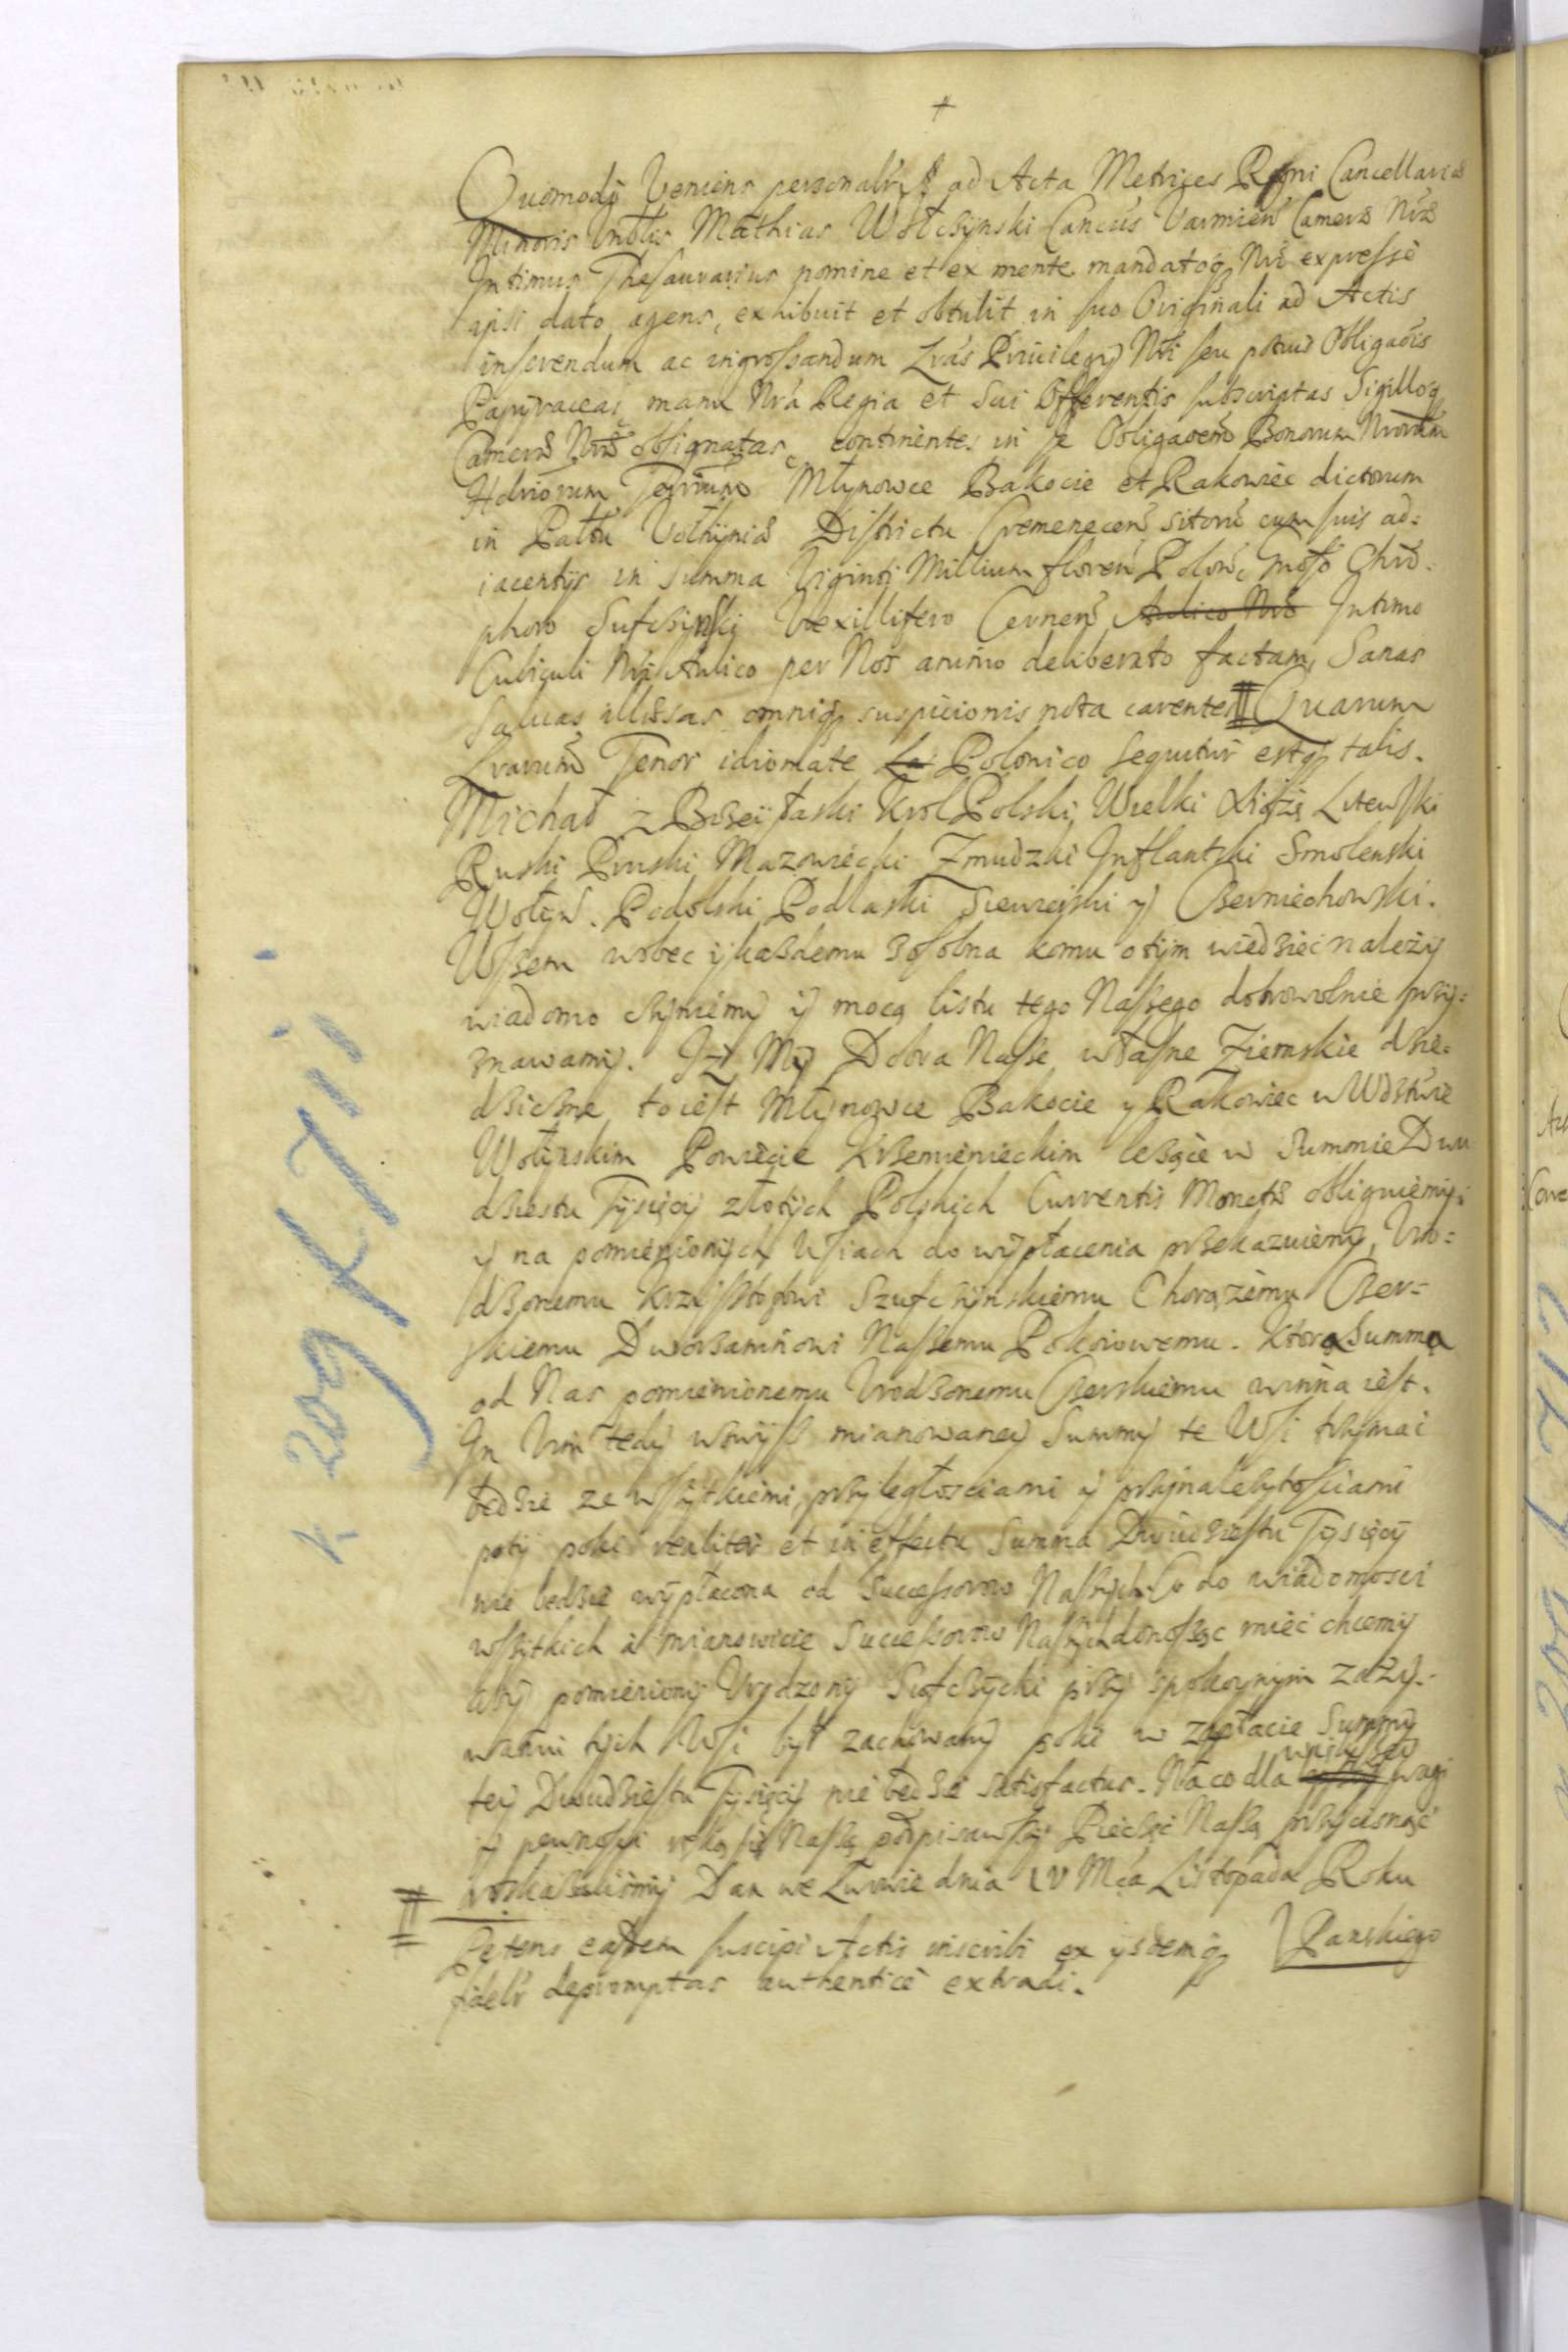 +
Quomodo Veniens personalr ad Acta Metrices Regni Cancellariæ
Minoris Vnblis Mathias Wolczynski Cancus Varmien Cameræ Nræ
Intimus Thesaurarius nomine et ex mente mandatoq Nri expresse
ipsi dato agens, exhibuit et obtulit in suo Originali ad Actis
inserendum ac ingrossandum Lras Priuilegij Nri seu potius Obligaois
Papyraceas manu Nra Regia et Sui Offerentis subscriptas Sigilloq
Cameræ Nræ obsignatas, continentes in se Obligaoem Bonorum Nrorum
Hdriorum Terrium Młynowce Bakocie et Rakowiec dictorum
in Pałtu Volhyniæ Districtu Cremenecen sitoru cum suis ad=
iacentijs in summa Viginti Millium floren Polon, Gnoso Chro-
phoro Sufczynski Vexillifero Cernen Aulico Nro Intimo
Cubiculi Nri Aulico per Nos animo deliberato factam, Sanas
saluas illæsas omniq suspicionis nota carentes Quarum
Lrarum Tenor idiomate La Polonico sequitur estq talis.
Michał z Bozey łaski Krol Polski, Wielki Xiąże Litewski
Ruski Pruski Mazowiecki Zmudzki Inflantski Smolenski
Wołyn. Podolski Podlaski Siewierski y Czerniechowski.
Wszem wobec y kazdemu zosobna komu otym wiedziec należy
wiadomo czyniemy y mocą listu tego Naszego dobrowolnie przy=
znawamy. Iż My Dobra Nasze własne Ziemskie dzie=
dziczne to iest Młynowce Bakocie y Rakowiec w Wdztwie
Wołynskim Powiecie Krzemienieckim lezące w Summie Dwu
dziestu Tysięcy złotych Polskich Currentis Monetæ obliguiemy
y na pomienionych Wsiach do wypłacenia przekazuiemy, Vro=
dzonemu Krzisztofowi Szufczynskiemu Chorążemu Czer=
skiemu Dworzaninowi Naszemu Pokoiowemu. Ktora Summa
od Nas pomienionemu Vrodzonemu Czerskiemu winna iest.
In Vim tedy wzwysz mianowaney Summy te Wsi trzymac
będzie ze wszytkiemi, przyległosciami y przynalezytosciami
poty poki realiter et in effectu Summa Dwudziestu Tysięcy
nie bedzie wypłacona od Successorow Naszych. Co do wiadomosci
wszytkich a mianowicie Successorow Naszych donosząc miec chcemy
aby pomieniony Vrodzony Sufczycki przy spokoynym zaży-
waniu tych Wsi był zachowany poki w zapłacie Summy
tey Dwudziestu Tysięcy nie będzie satisfactus. Na co dla większey wagi
y pewnosci ręką się Naszą podpisawszy Pieczęć Naszą przycisnąć
rozkazalismy Dan we Lwowie dnia IV Mca Listopada Roku
Panskiego
Petens easdem suscipi Actis inscribi ex ijsdemq
fidelr depromptas authentice extradi.